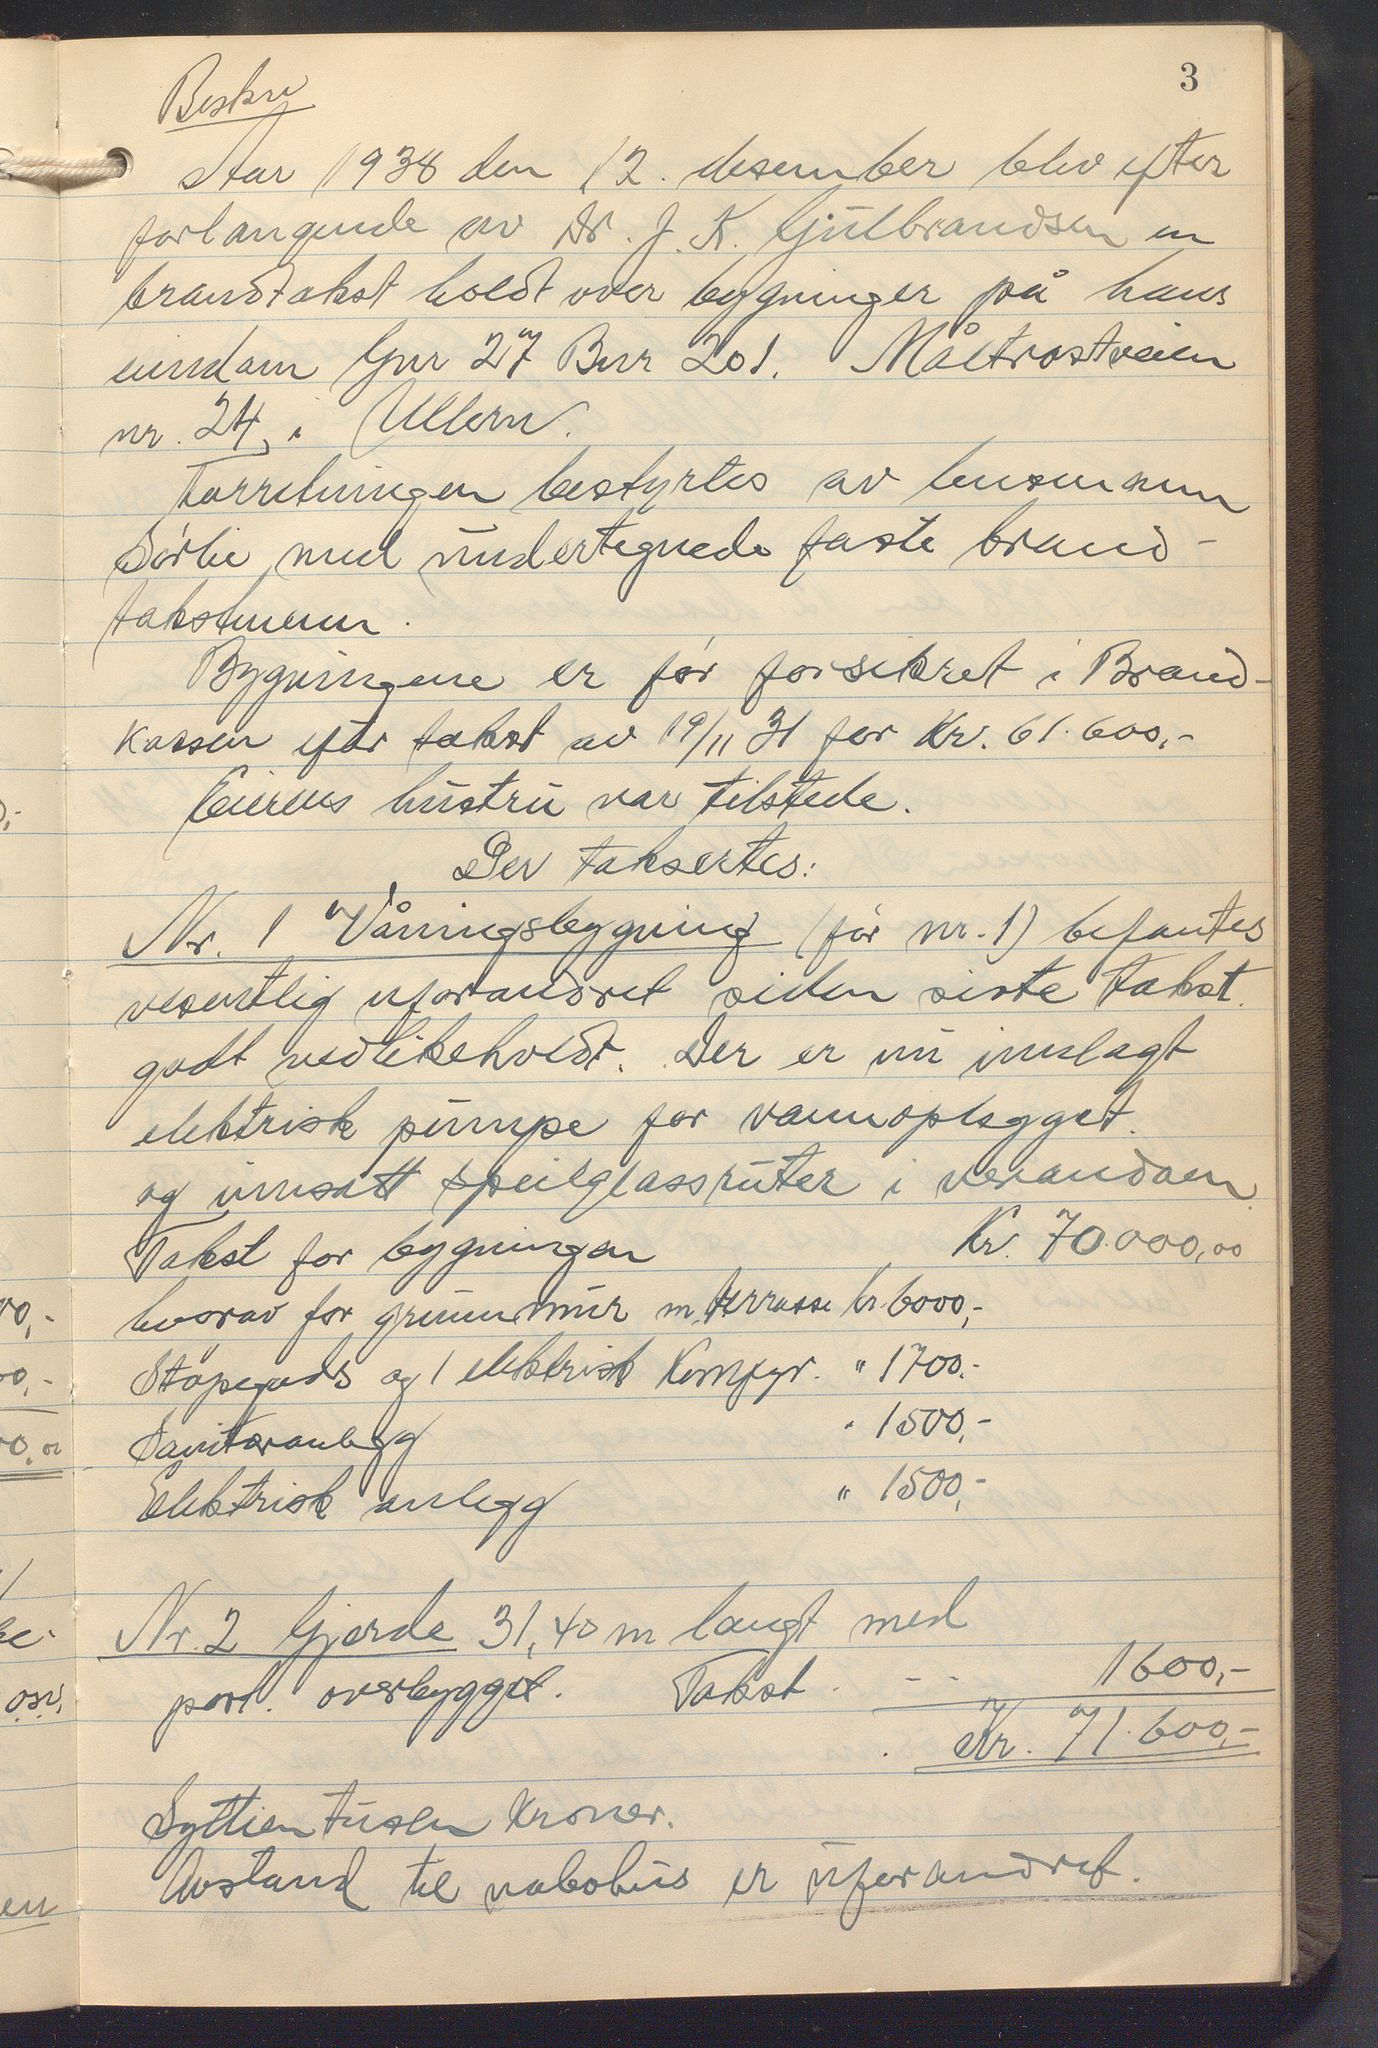 3
Beskrv
Aar 1938 den 12. desember blev efter
forlangende av Dr. J. K. Gulbrandsen en
brandtakst holdt over bygninger på hans
eiendom Gnr 27 Bnr 201. Måltrostveien
nr. 24, i Ullern.
Forretningen bestyrtes av lensmann
Sørlie med undertegnede faste brand-
takstmenn.
Bygningene er før forsikret i Brand-
kassen efter takst av 19/11 31 for Kr. 61.600,-
Eierens hustru var tilstede.
Der taksertes:
Nr. 1 Våningsbygning (før nr. 1) befantes
vesentlig uforandret siden siste takst.
godt vedlikeholdt. Der er nu innlagt
elektrisk pumpe for vannoplegget.
og innsatt speilglassruter i verandaen.
Takst for bygningen Kr. 70.000,00
hvorav for grunnmur m. terrasse kr. 6000,-
Støpegods og 1 elektrisk Komfyr. " 1700.-
Sanitæranlegg " 1500,-
Elektrisk anlegg " 1500,-
Nr. 2 Gjerde 31,40 m langt med
port. overbygget. Takst . - - 1600,-
Kr. 71.600,-
Syttien tusen Kroner.
Avstand til nabohus er uforandret.